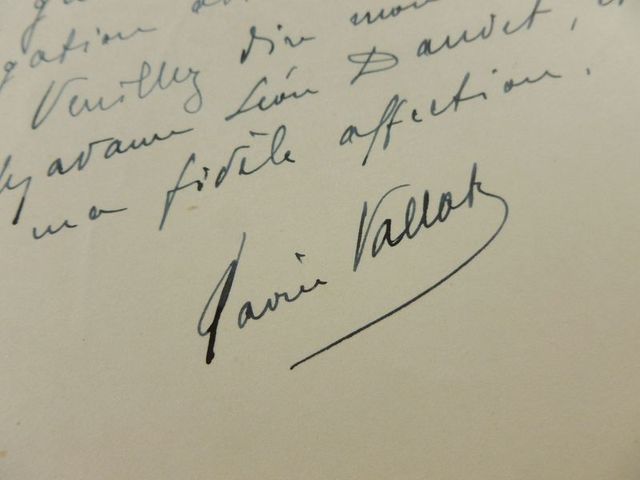 gation
Veuillez dire mon
Madame Léon Daudet, et
ma fidèle affection.
Xavier Vallat